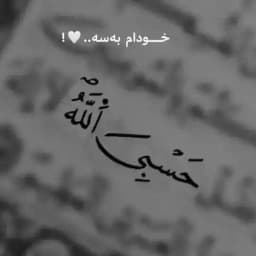 خـــودام بەسە..🤍!
حَسْبِيَ ٱللَّهُ